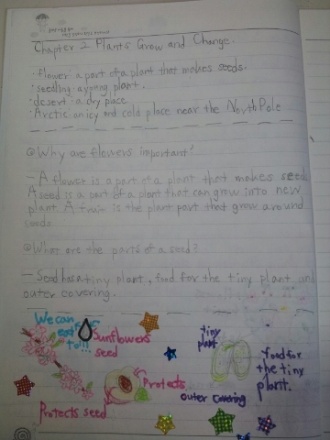 Chapter 2 Plants Grow and Change.
· flower: a part of a plant that makes seeds.
· seedling: a young plant.
· desert: a dry place
· Arctic: an icy and cold place near the North Pole
Why are flowers important?
- A flower is a part of a plant that makes seed
A seed is a part of a plant that can grow into new
plant. A fruit is the plant part that grow around
seeds
What are the parts of a seed?
- Seed has a tiny plant, food for the tiny plant and
outer covering.
We can
eat
too!!
Sunflowers
seed
tiny
plant
food for
the tiny
plant.
Protects
outer covering
Protects seed